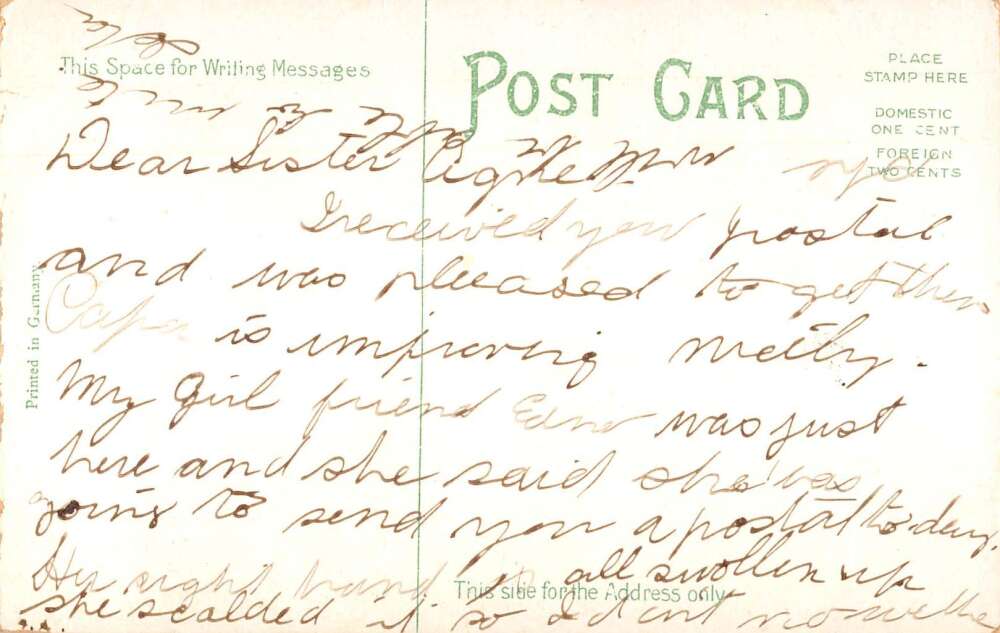 This Space for Writing Messages
POST CARD
PLACE
STAMP HERE
DOMESTIC
ONE CENT
FOREIGN
TWO CENTS
Printed in Germany
Dear Sister
I received you postal
and was pleased to get them
Papa is improving nicely.
My Girl friend Edna was just
here and she said she was
going to send you a postal to day,
Her right hand is all swollen up
This side for the Address only
she scalded it so I dont no wether